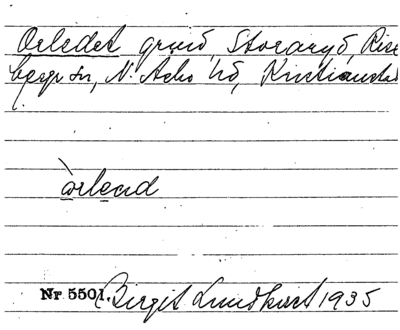 Örledet grund, Storaryd, Rise
berga sn, N. Åsbo hd, Kristianstad
l.
òrlead
Nr 5501. Birgit Lundkvist 1935